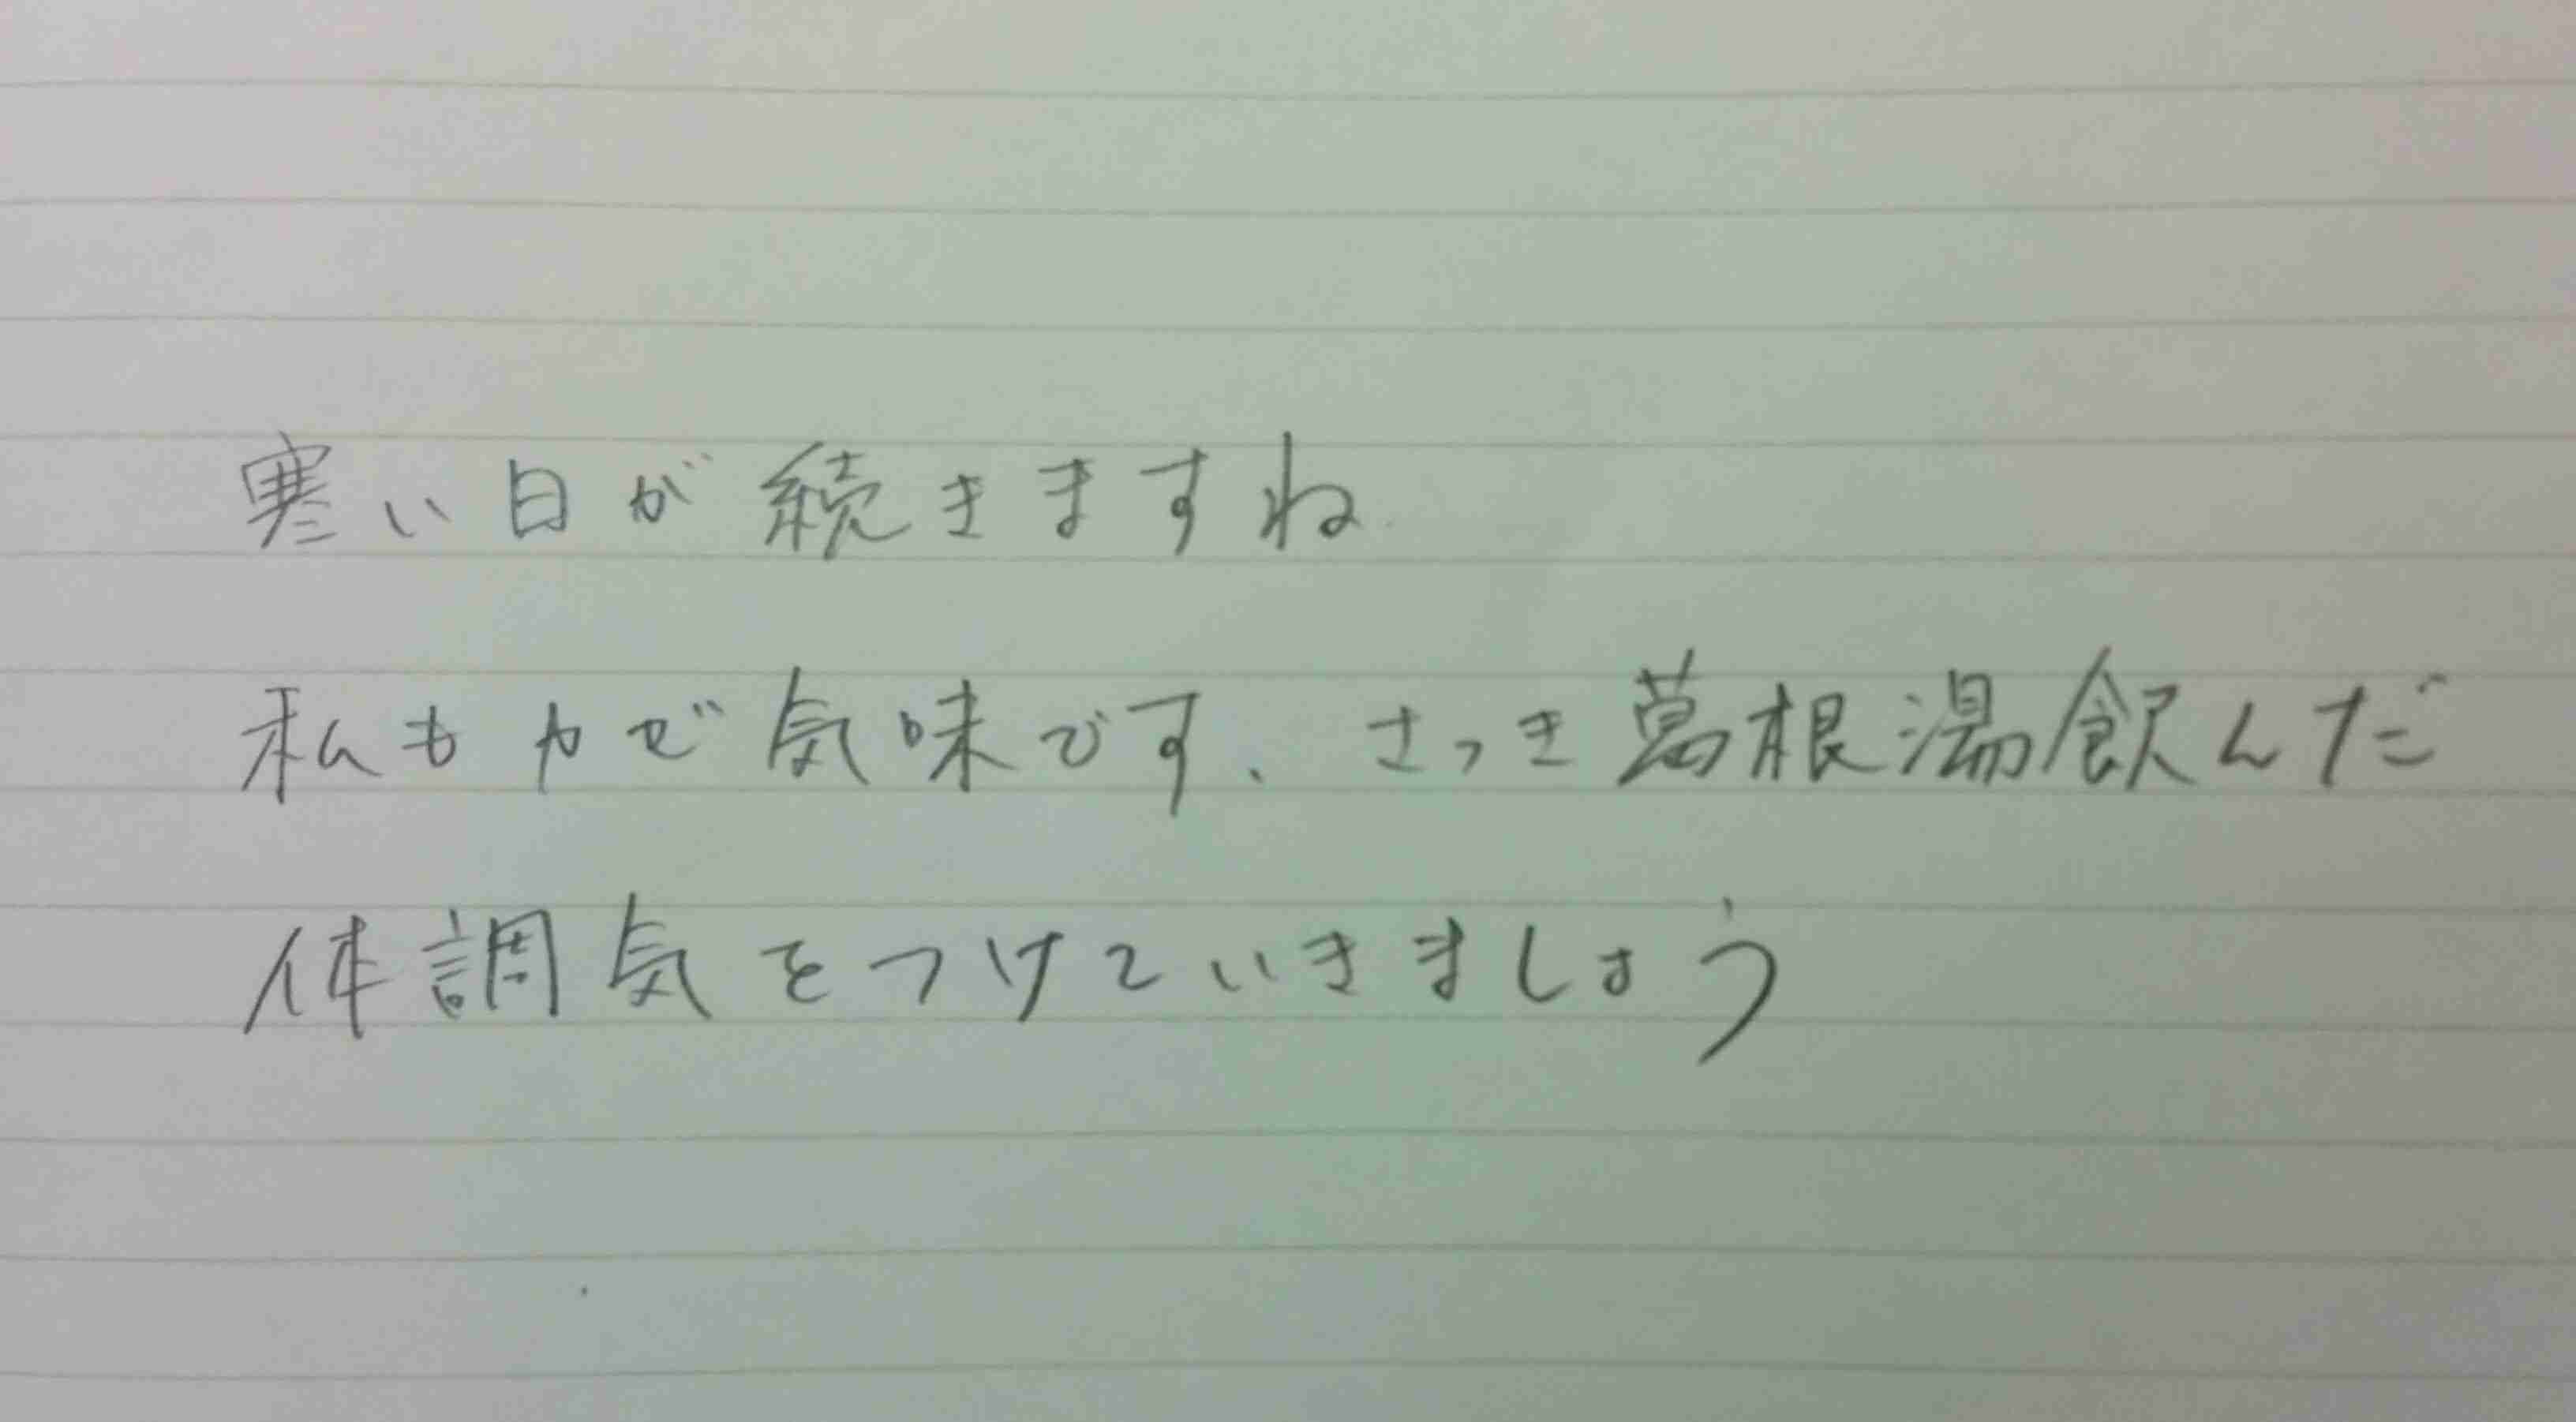 寒い日が続きますね
私もカゼ気味です、さっき葛根湯飲んだ
体調気をつけていきましょう